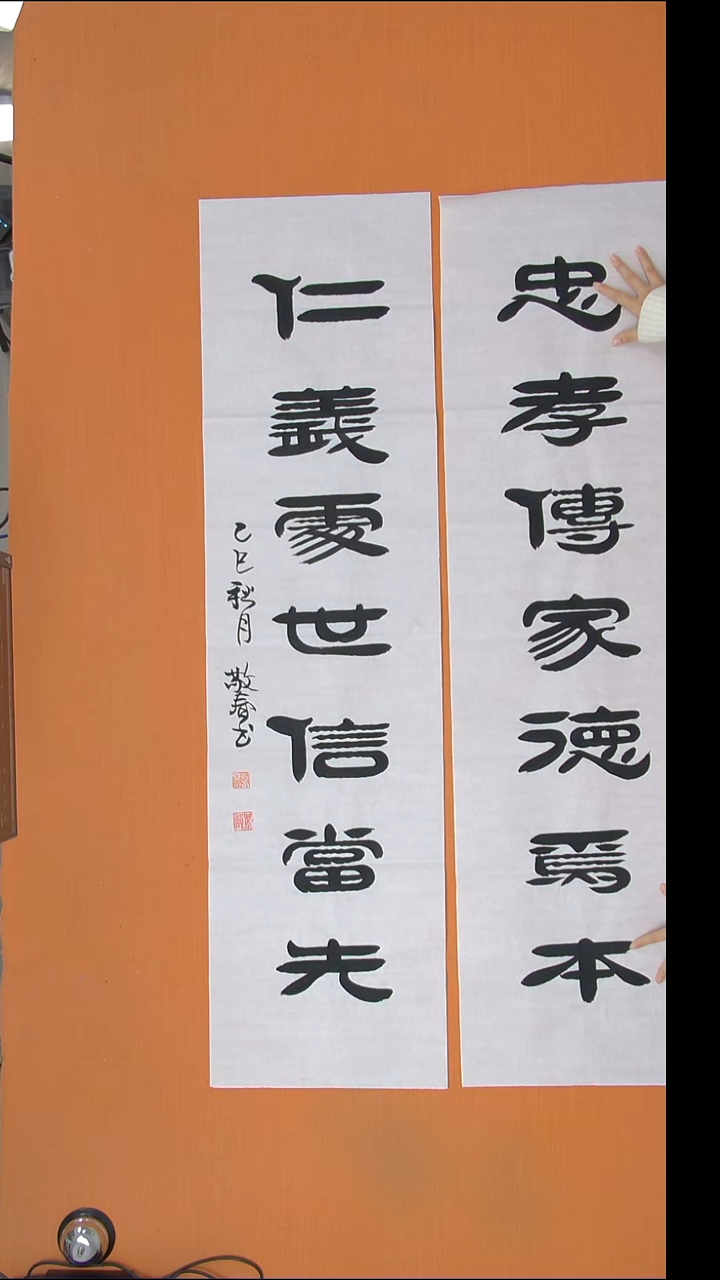 忠孝傳家德為本
仁義處世信當先
乙巳秋月 敬春书